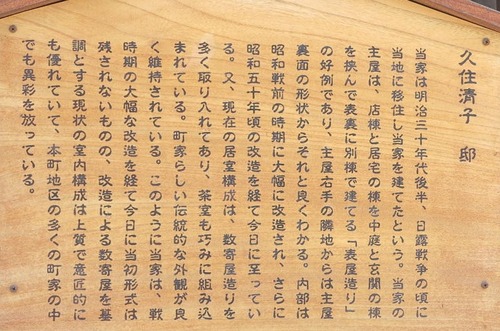 久住清子 邸
当家は明治三十年代後半、日露戦争の頃に
当地に移住し当家を建てたという。当家の
主屋は、店棟と居宅の棟を中庭と玄関の棟
を挟んで表裏に別棟で建てる「表屋造り」
の好例であり、主屋右手の隣地からは主屋
裏面の形状からそれと良くわかる。内部は
昭和戦前の時期に大幅に改造され、さらに
昭和五十年頃の改造を経て今日に至ってい
る。又、現在の居室構成は、数寄屋造りを
多く取り入れてあり、茶室も巧みに組み込
まれている。町家らしい伝統的な外観が良
く維持されている。このように当家は、戦
時期の大幅な改造を経て今日に当初形式は
残されないものの、改造による数寄屋を基
調とする現状の室内構成は上質で意匠的に
も優れていて、本町地区の多くの町家の中
でも異彩を放っている。